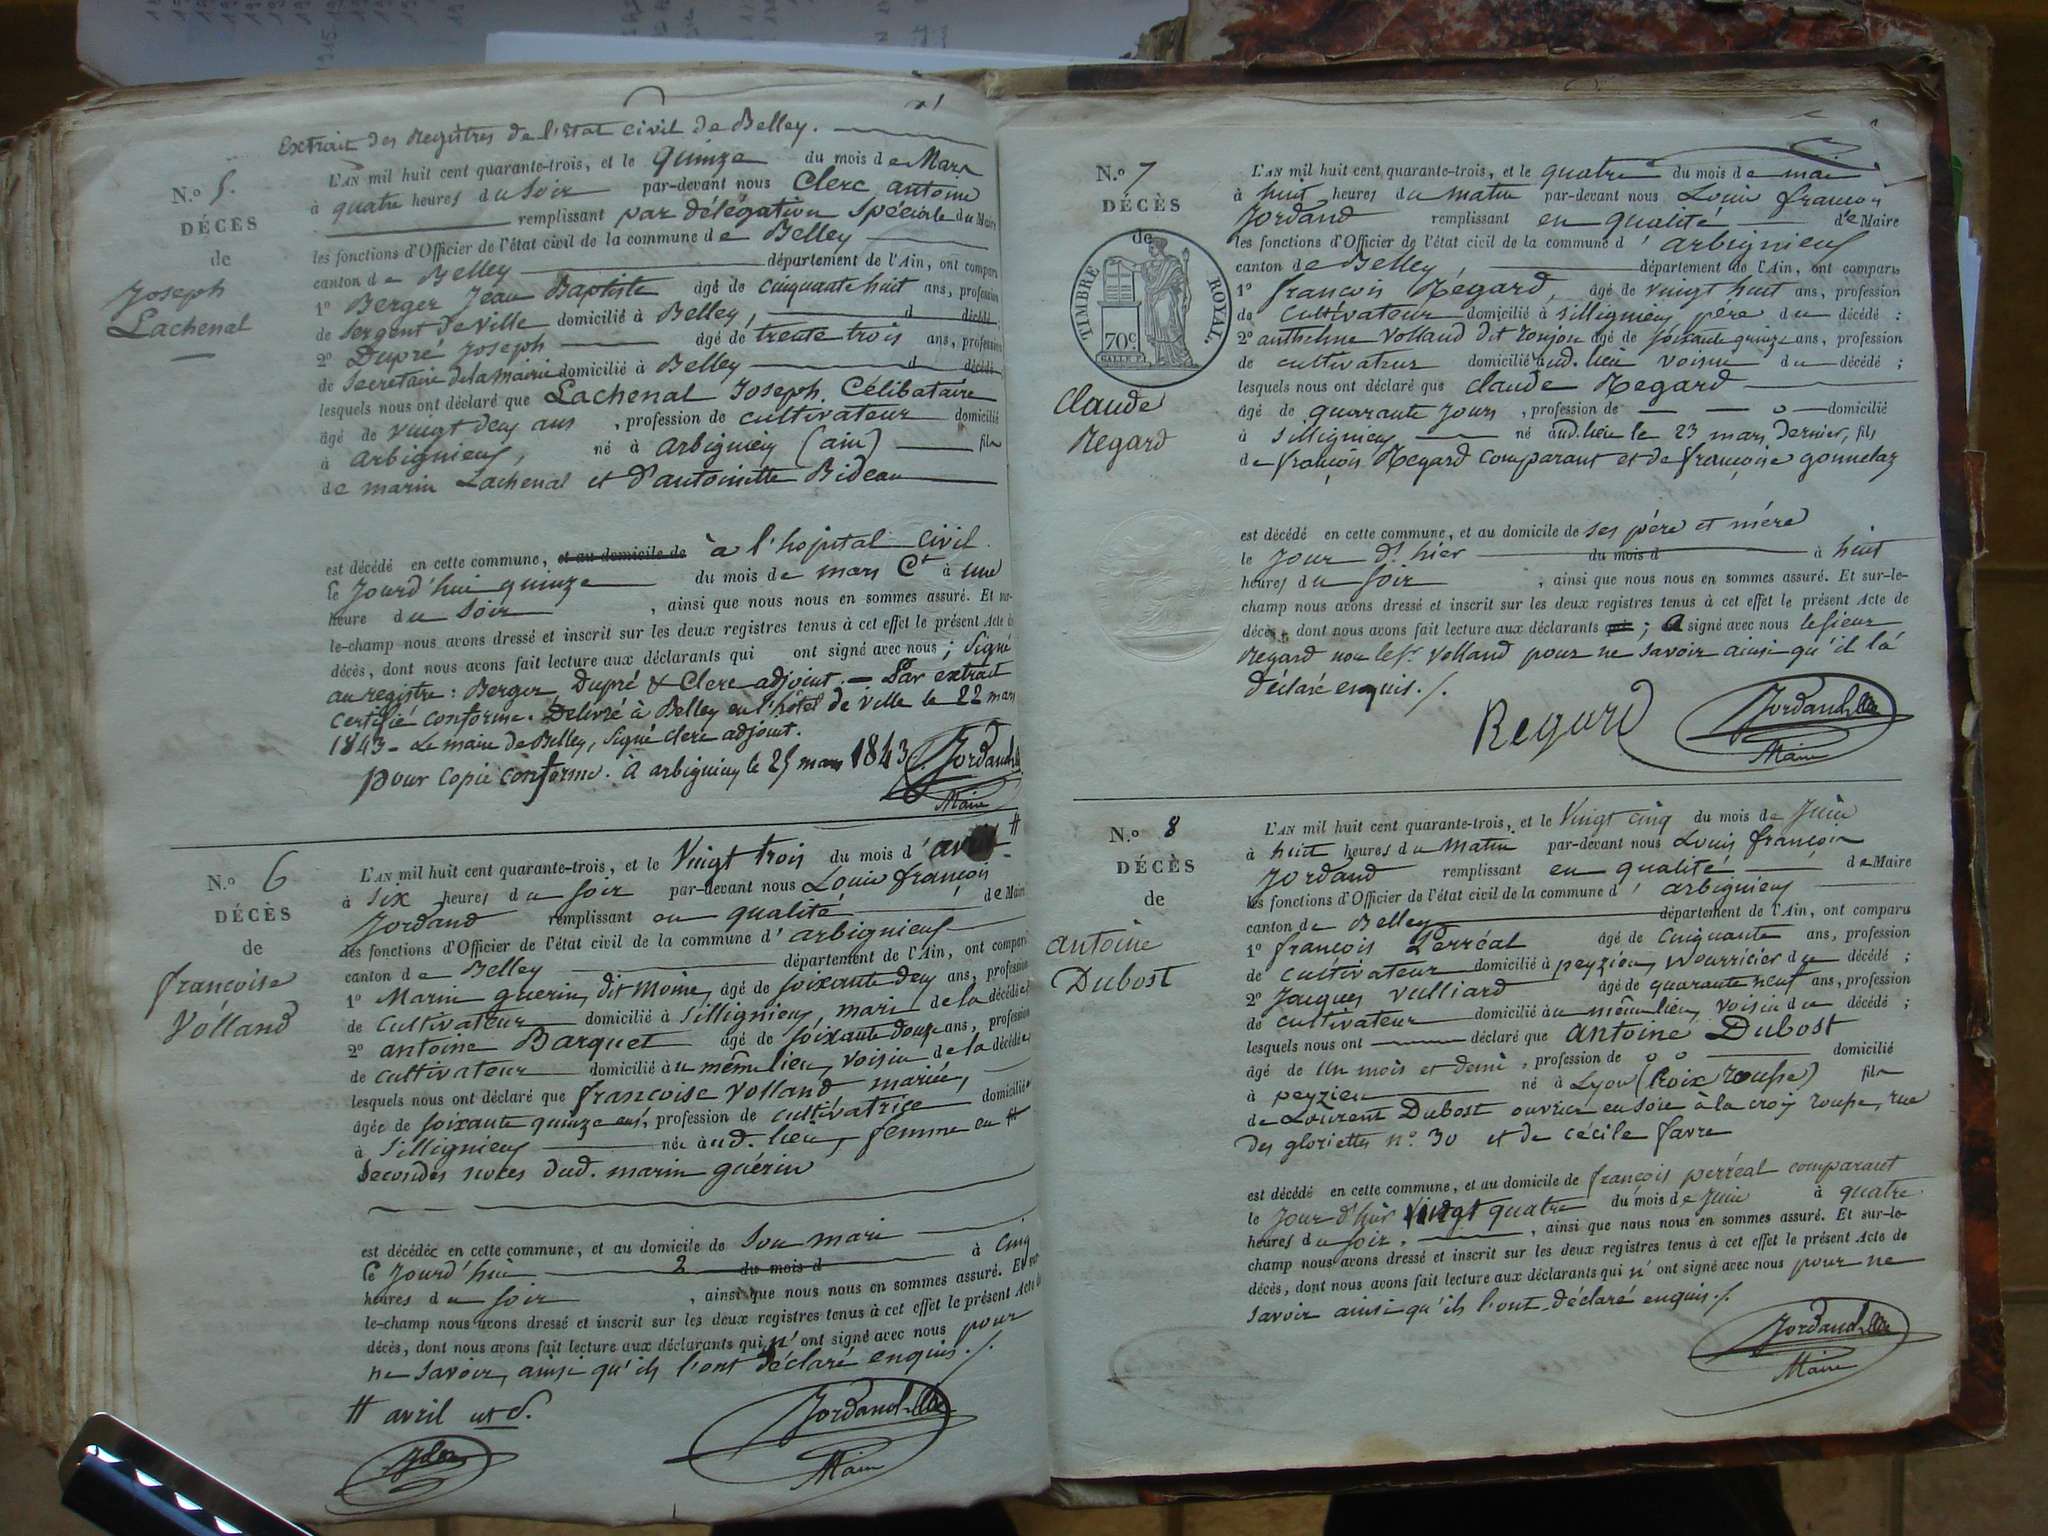 Extrait des Registres de l'Etat civil de Belley.
N.o 5.
DÉCÈS
de
Joseph
Lachenal
L'AN mil huit cent quarante-trois, et le quinze du mois de Mars
à quatre heures du soir par-devant nous Clerc antoine
remplissant par délégation spéciale du Maire
les fonctions d'Officier de l'état civil de la commune de Belley
canton de Belley département de l'Ain, ont comparu
1o Berger Jean Baptiste âgé de cinquante huit ans, profession
de Sergent de ville domicilié à Belley, d décédé ;
2o Dupré Joseph âgé de trente trois ans, profession
de Secretaire de la mairie domicilié à Belley d décédé
lesquels nous ont déclaré que Lachenal Joseph, Célibataire
âgé de vingt deux ans , profession de cultivateur domicilié
à arbignieux, né à arbignieux (ain) fils
de marin Lachenal et d'antoinette Bideau
est décédé en cette commune, et au domicile de à l'hopital civil
le Jourd'hui quinze du mois de mars Ct à une
heure du soir , ainsi que nous nous en sommes assuré. Et sur-
le-champ nous avons dressé et inscrit sur les deux registres tenus à cet effet le présent Acte de
décès, dont nous avons fait lecture aux déclarants qui ont signé avec nous ; Signé
au registre : Berger, Dupré & Clerc adjoint. — Par extrait
certifié conforme. Délivré à Belley en l'hôtel de ville le 22 mars
1843 - Le maire de Belley, signé clerc adjoint.
pour copie conforme. A arbignieux le 25 mars 1843 Jordand
Maire
N.o 6
DÉCÈS
de
françoise
Volland
L'AN mil huit cent quarante-trois, et le Vingt trois du mois d'avril #
à six heures du soir par-devant nous Louis françois
Jordand remplissant en qualité de Maire
les fonctions d'Officier de l'état civil de la commune d'arbignieux
canton de Belley département de l'Ain, ont comparu
1o Marin guerin, dit moine, âgé de soixante deux ans, profession
de cultivateur domicilié à Sillignieux, mari de la décédée ;
2o antoine Barquet âgé de soixante douze ans, profession
de cultivateur domicilié au même lieu, voisin de la décédée ;
lesquels nous ont déclaré que françoise Volland mariée,
âgée de soixante quinze ans, profession de cultivatrice domiciliée
à Sillignieux née aud. lieu, femme en #
secondes noces dud. marin guérin
est décédée en cette commune, et au domicile de son mari
le Jourd'hui 2 du mois d à cinq
heures du soir , ainsi que nous nous en sommes assuré. Et sur
le-champ nous avons dressé et inscrit sur les deux registres tenus à cet effet le présent Acte de
décès, dont nous avons fait lecture aux déclarants qui n'ont signé avec nous pour
ne savoir, ainsi qu'ils l'ont déclaré enquis./.
# avril
Jordand
Maire
N.o 7
DÉCÈS
de
TIMBRE ROYAL.
70c
claude
Regard
L'AN mil huit cent quarante-trois, et le quatre du mois de mai
à huit heures du matin par-devant nous Louis françois
Jordand remplissant en qualité de Maire
les fonctions d'Officier de l'état civil de la commune d'arbignieux
canton de Belley département de l'Ain, ont comparu
1o francois Régard, âgé de vingt huit ans, profession
de cultivateur domicilié à Sillignieux père du décédé ;
2o anthelme Volland dit âgé de soixante quinze ans, profession
de cultivateur domicilié aud. lieu voisin du décédé ;
lesquels nous ont déclaré que claude Regard
âgé de quarante jours , profession de — — o — domicilié
à Sillignieux né aud. lieu le 23 mars dernier, fils
de françois Regard comparant et de françoise gonnelaz
est décédé en cette commune, et au domicile de ses père et mère
le jour d'hier du mois d à huit
heures du soir , ainsi que nous nous en sommes assuré. Et sur-le-
champ nous avons dressé et inscrit sur les deux registres tenus à cet effet le présent Acte de
décès, dont nous avons fait lecture aux déclarants qui ; a signé avec nous le sieur
Regard non le sr. Volland pour ne savoir ainsi qu'il l'a
déclaré enquis./.
Regard Jordand
Maire
N.o 8
DÉCÈS
de
antoine
Dubost
L'AN mil huit cent quarante-trois, et le Vingt cinq du mois de Juin
à huit heures du matin par-devant nous Louis françois
Jordand remplissant en qualité de Maire
les fonctions d'Officier de l'état civil de la commune d'arbignieux
canton de Belley département de l'Ain, ont comparu
1o françois Perréal âgé de cinquante ans, profession
de cultivateur domicilié à peyzieu, nourricier du décédé ;
2o Jacques Vulliard âgé de quarante neuf ans, profession
de cultivateur domicilié au même lieu, voisin du décédé ;
lesquels nous ont déclaré que antoine Dubost
âgé de un mois et demi , profession de o o domicilié
à peyzieu né à Lyon (Croix rousse) fils
de Laurent Dubost ouvrier en soie à la croix rousse, rue
des gloriettes no. 30 et de cécile favre
est décédé en cette commune, et au domicile de françois perréal comparant
le jour d'hier vingt quatre du mois de Juin à quatre
heures du soir. , ainsi que nous nous en sommes assuré. Et sur-le-
champ nous avons dressé et inscrit sur les deux registres tenus à cet effet le présent Acte de
décès, dont nous avons fait lecture aux déclarants qui n'ont signé avec nous pour ne
savoir ainsi qu'ils l'ont déclaré enquis./.
Jordand
Maire